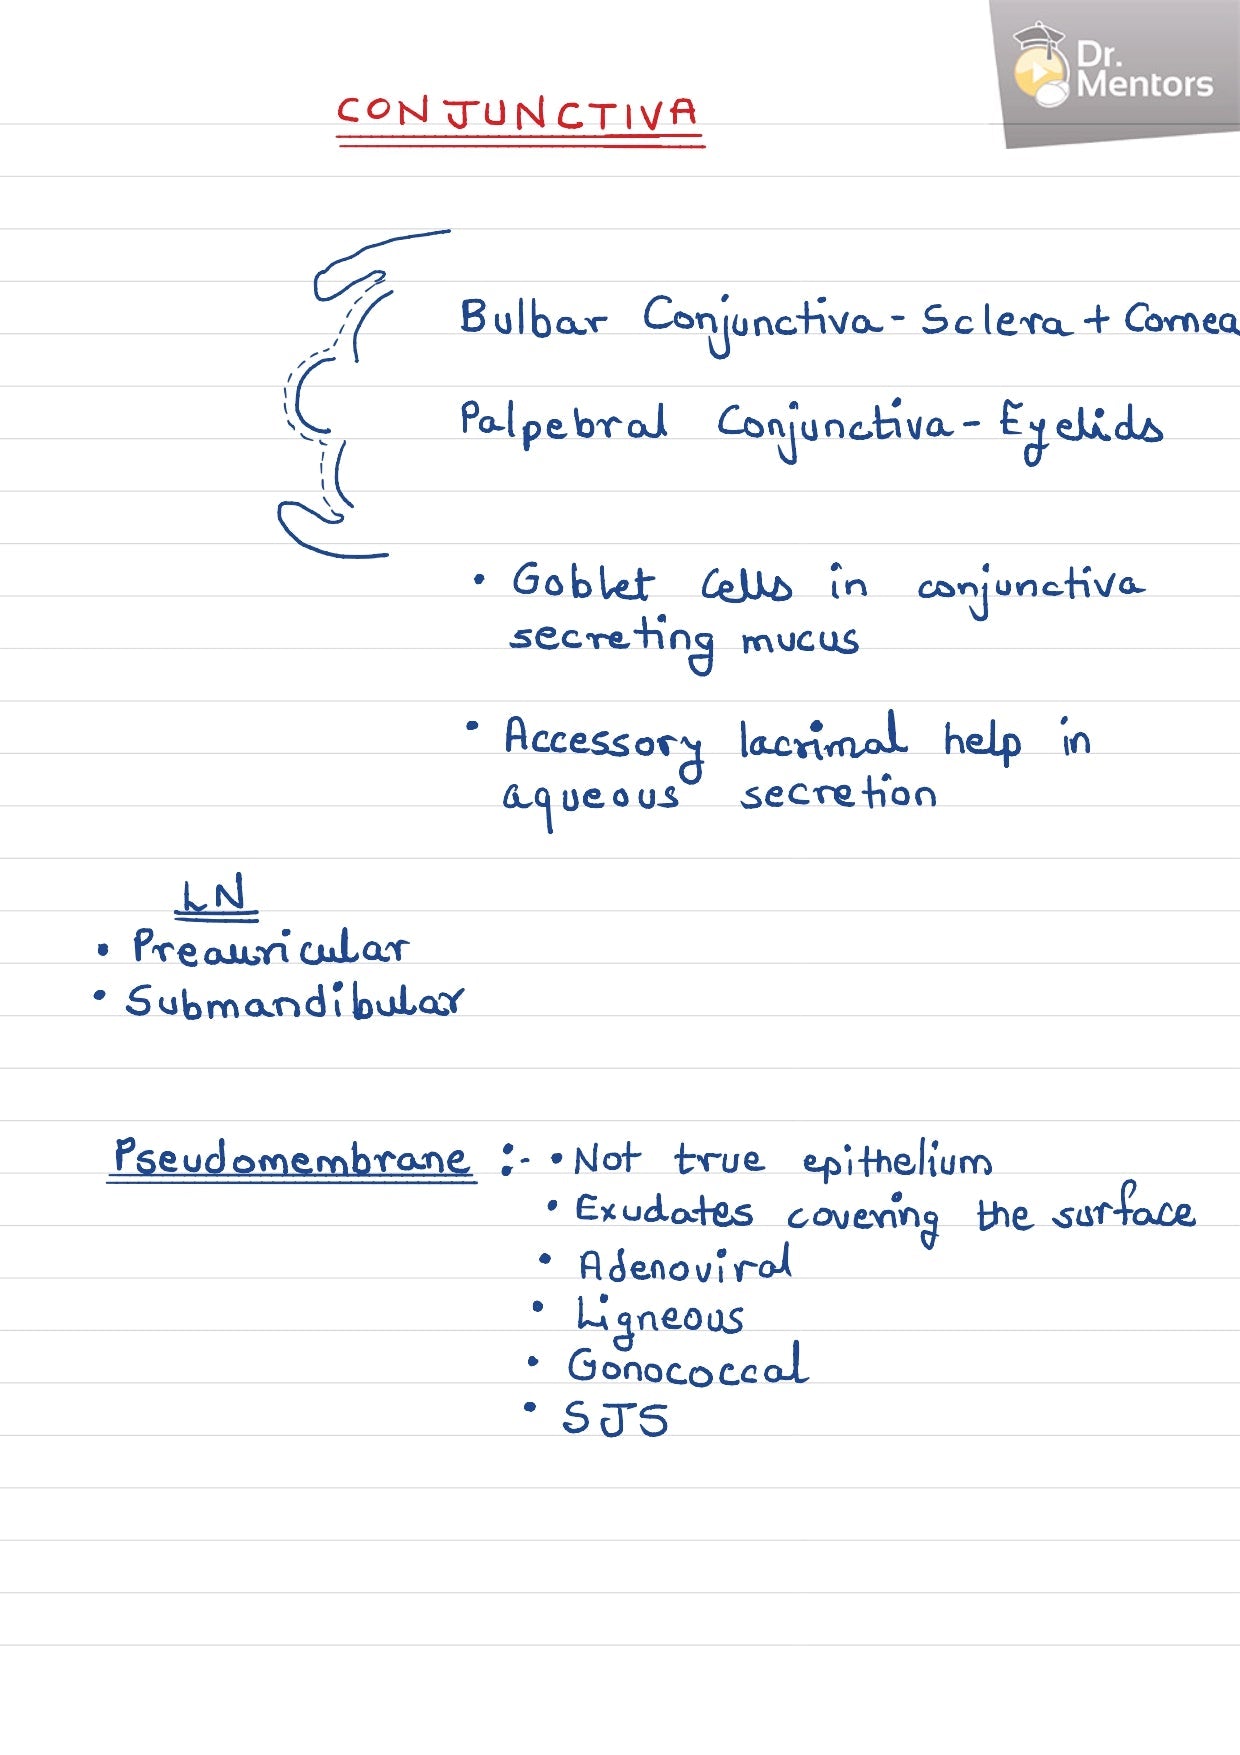 Dr.
Mentors
CONJUNCTIVA
Bulbar Conjunctiva - Sclera + Cornea
Palpebral Conjunctiva - Eyelids
• Goblet Cells in conjunctiva
secreting mucus
• Accessory lacrimal help in
aqueous secretion
LN
• Preauricular
• Submandibular
Pseudomembrane :- • Not true epithelium
• Exudates covering the surface
• Adenoviral
• Ligneous
• Gonococcal
• SJS